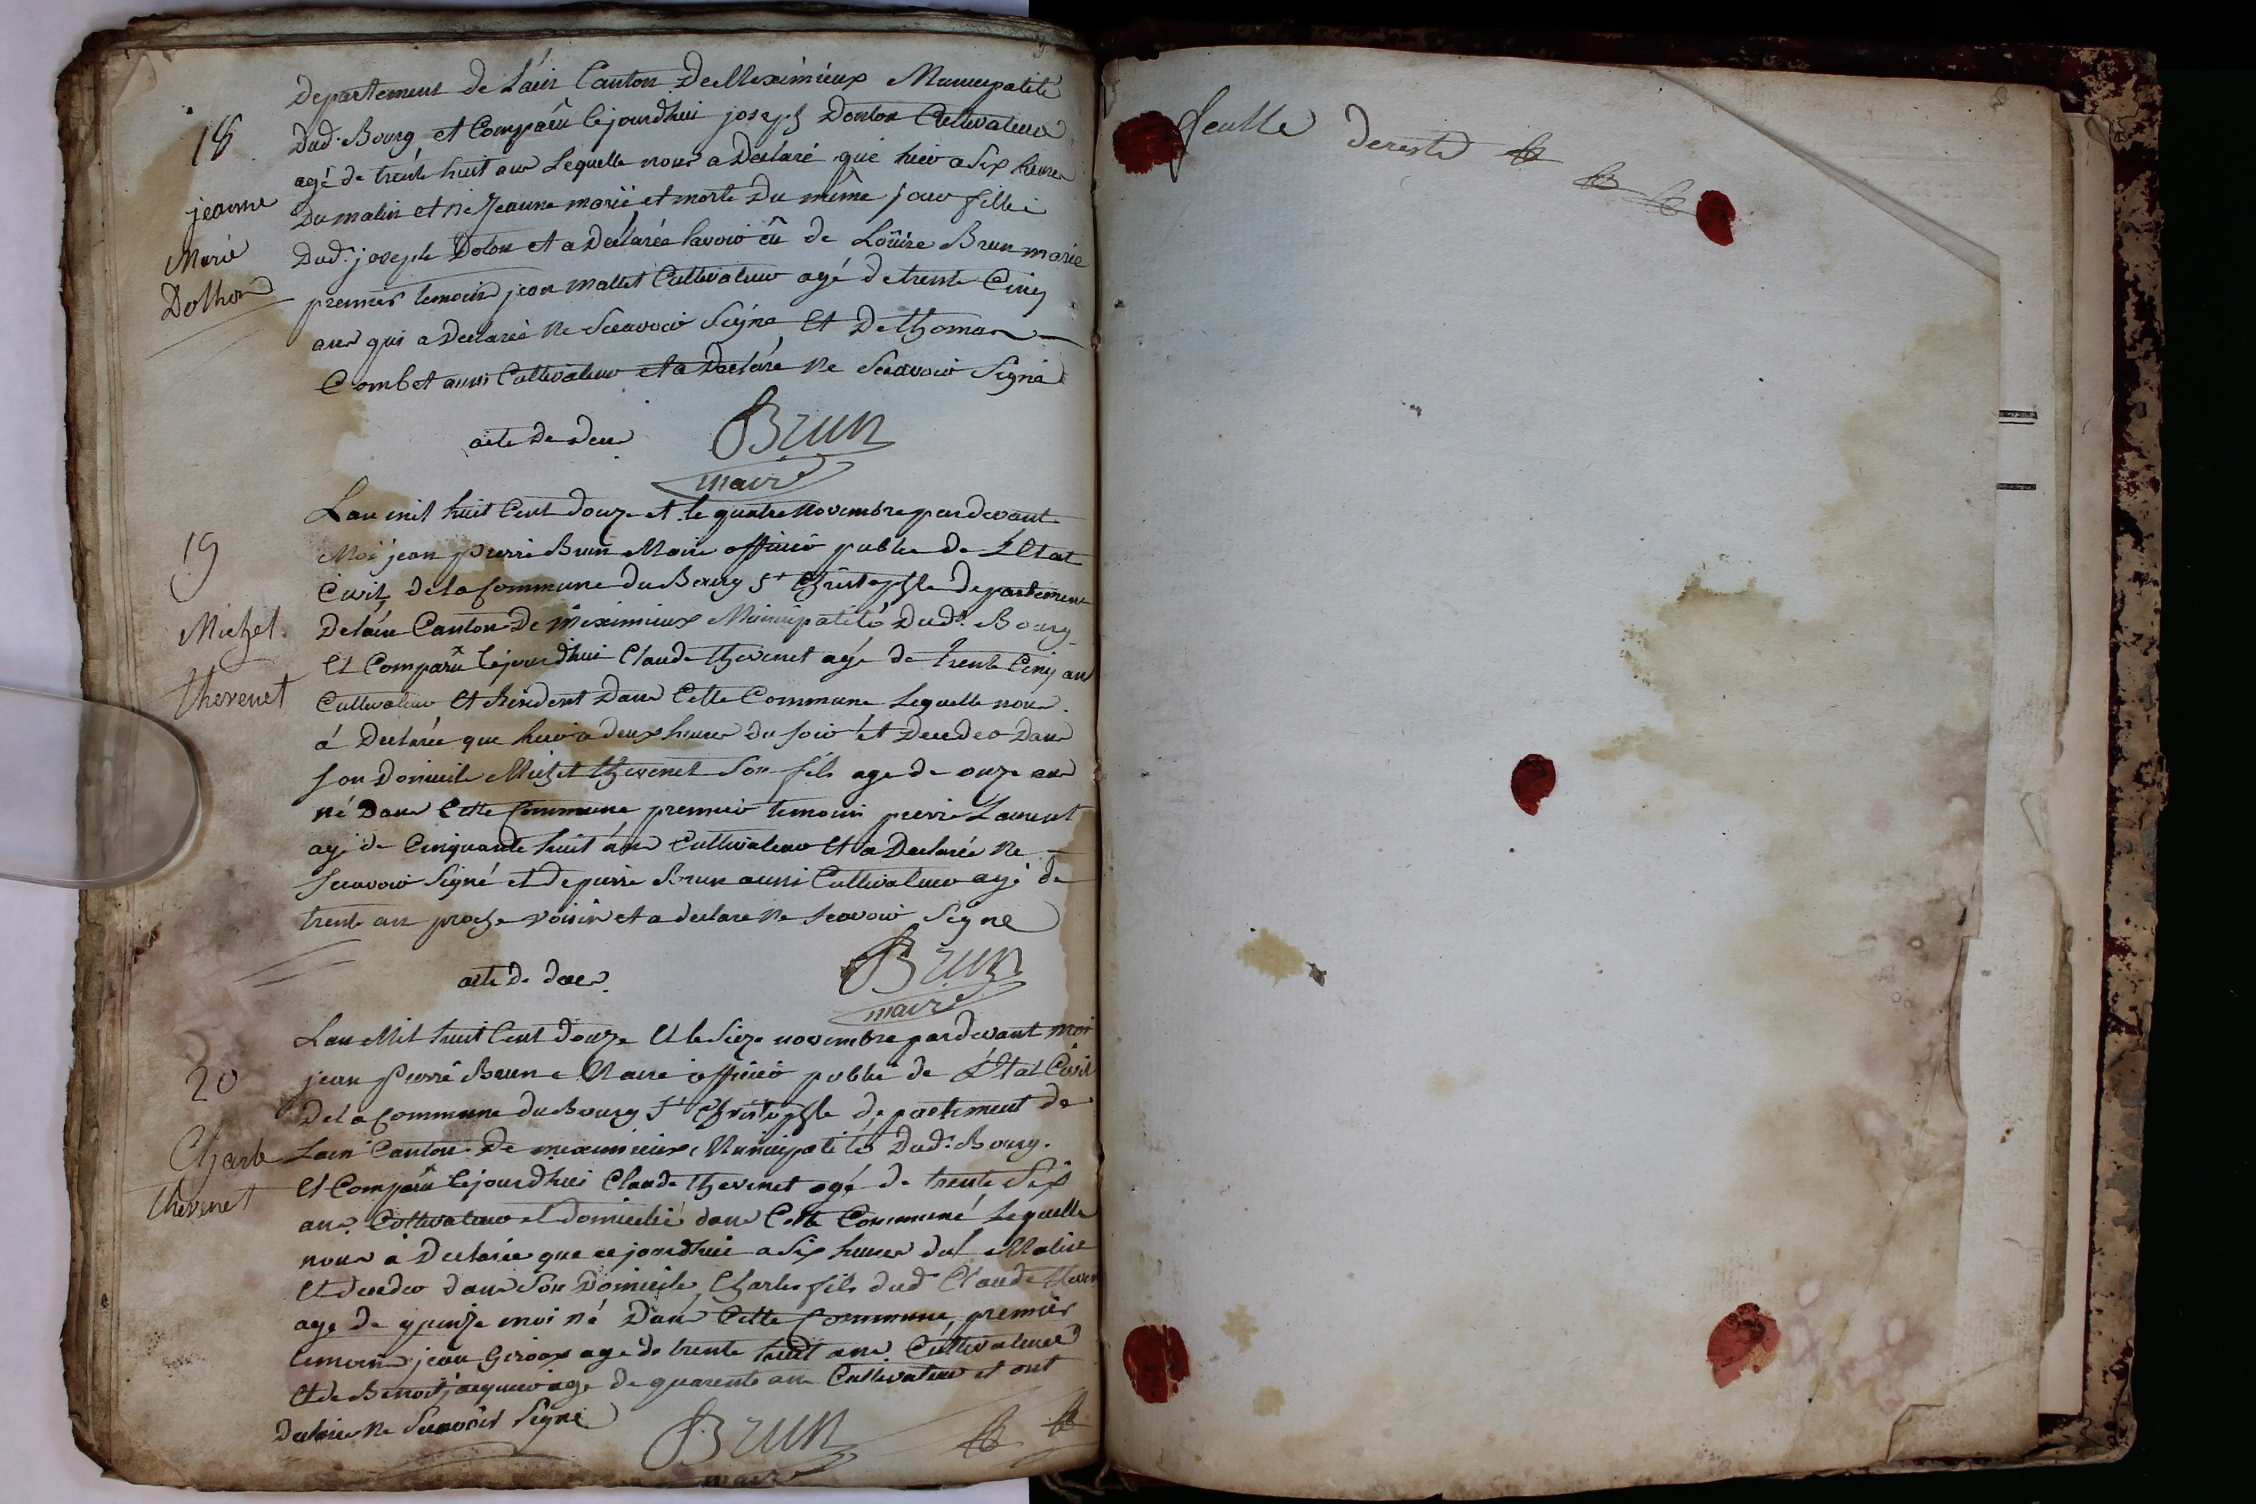 Departement de L'ain Canton De Meximieux Municipalité
18
Dud. Bourg et Comparû Cejourdhui joseph Donlon Cultivateur
agé de trente huit ans Lequelle nous a Declaré que hier a Six heures
jeanne
Du matin et né Jeanne marie et morte Du même jour fille
Marie
Dud. joseph Dolon et a Declarée lavoir êû de Loûise Brun marie
Dolhon
premier temoins jean mallet Cultivateur agé de trente Cinq
ans qui a Declarée ne Sceavoir Signé Et De thomas
Combet aussi Cultivateur et a Declaré ne Sceavoir Signé
acte De Deces
Brun
maire
Lan mil huit Cent douze et le quatre novembre par devant
19
Moi jean pierre Brun Maire officier public de L'Etat
Civil de la Commune du Bourg St Christophle departement
Michel
Delain Canton De Meximieux Municipalité Dud. Bourg
Et Comparû Cejourdhui Claude thevenet agé de trente Cinq ans
thevenet
Cultivateur Et Résident Dans Cette Commune Lequelle nous
á Declarée que hier a deux heures du soir ét Decedeo Dans
son Domicile Michel thevenet Son fils age de onze ans
né Dans Cette Commune premier temoin pierre Laurent
agé de Cinquante huit áns Cultivateur Et a Declarée ne
Sceavoir Signé et de pierre Brun aussi Cultivateur agé de
trente an proche voisin et a declare ne Sceavoir Signe
acte de deces
Brun
maire
Lan Mil huit Cent douze Et le Sieze novembre par devant moi
20
jean Pierre Brun Maire officier public de L'Etat Civil
De la Commune du Bourg St Christophle departement de
Charle
Lain Canton De meximieux Municipalités Dud. Bourg.
thevenet
Et Comparû Cejourdhui Claude thevenet agé de trente Six
ans Cultivateur et domicilié dans Cette Communé Lequelle
nous á Declarée que cejourdhui a Six heures du Matin
Et decedeo dans Son Domicile Charles fils dud Claude theven
age de quinze moi né Dans Cette Commune premier
temoins jean Giroux age de trente huit ans Cultivateur
Et de Benoit jacquier age de quarente ans Cultivateur et ont
Declaré ne Sceavoir Signé
Brun
maire
feulle dereste